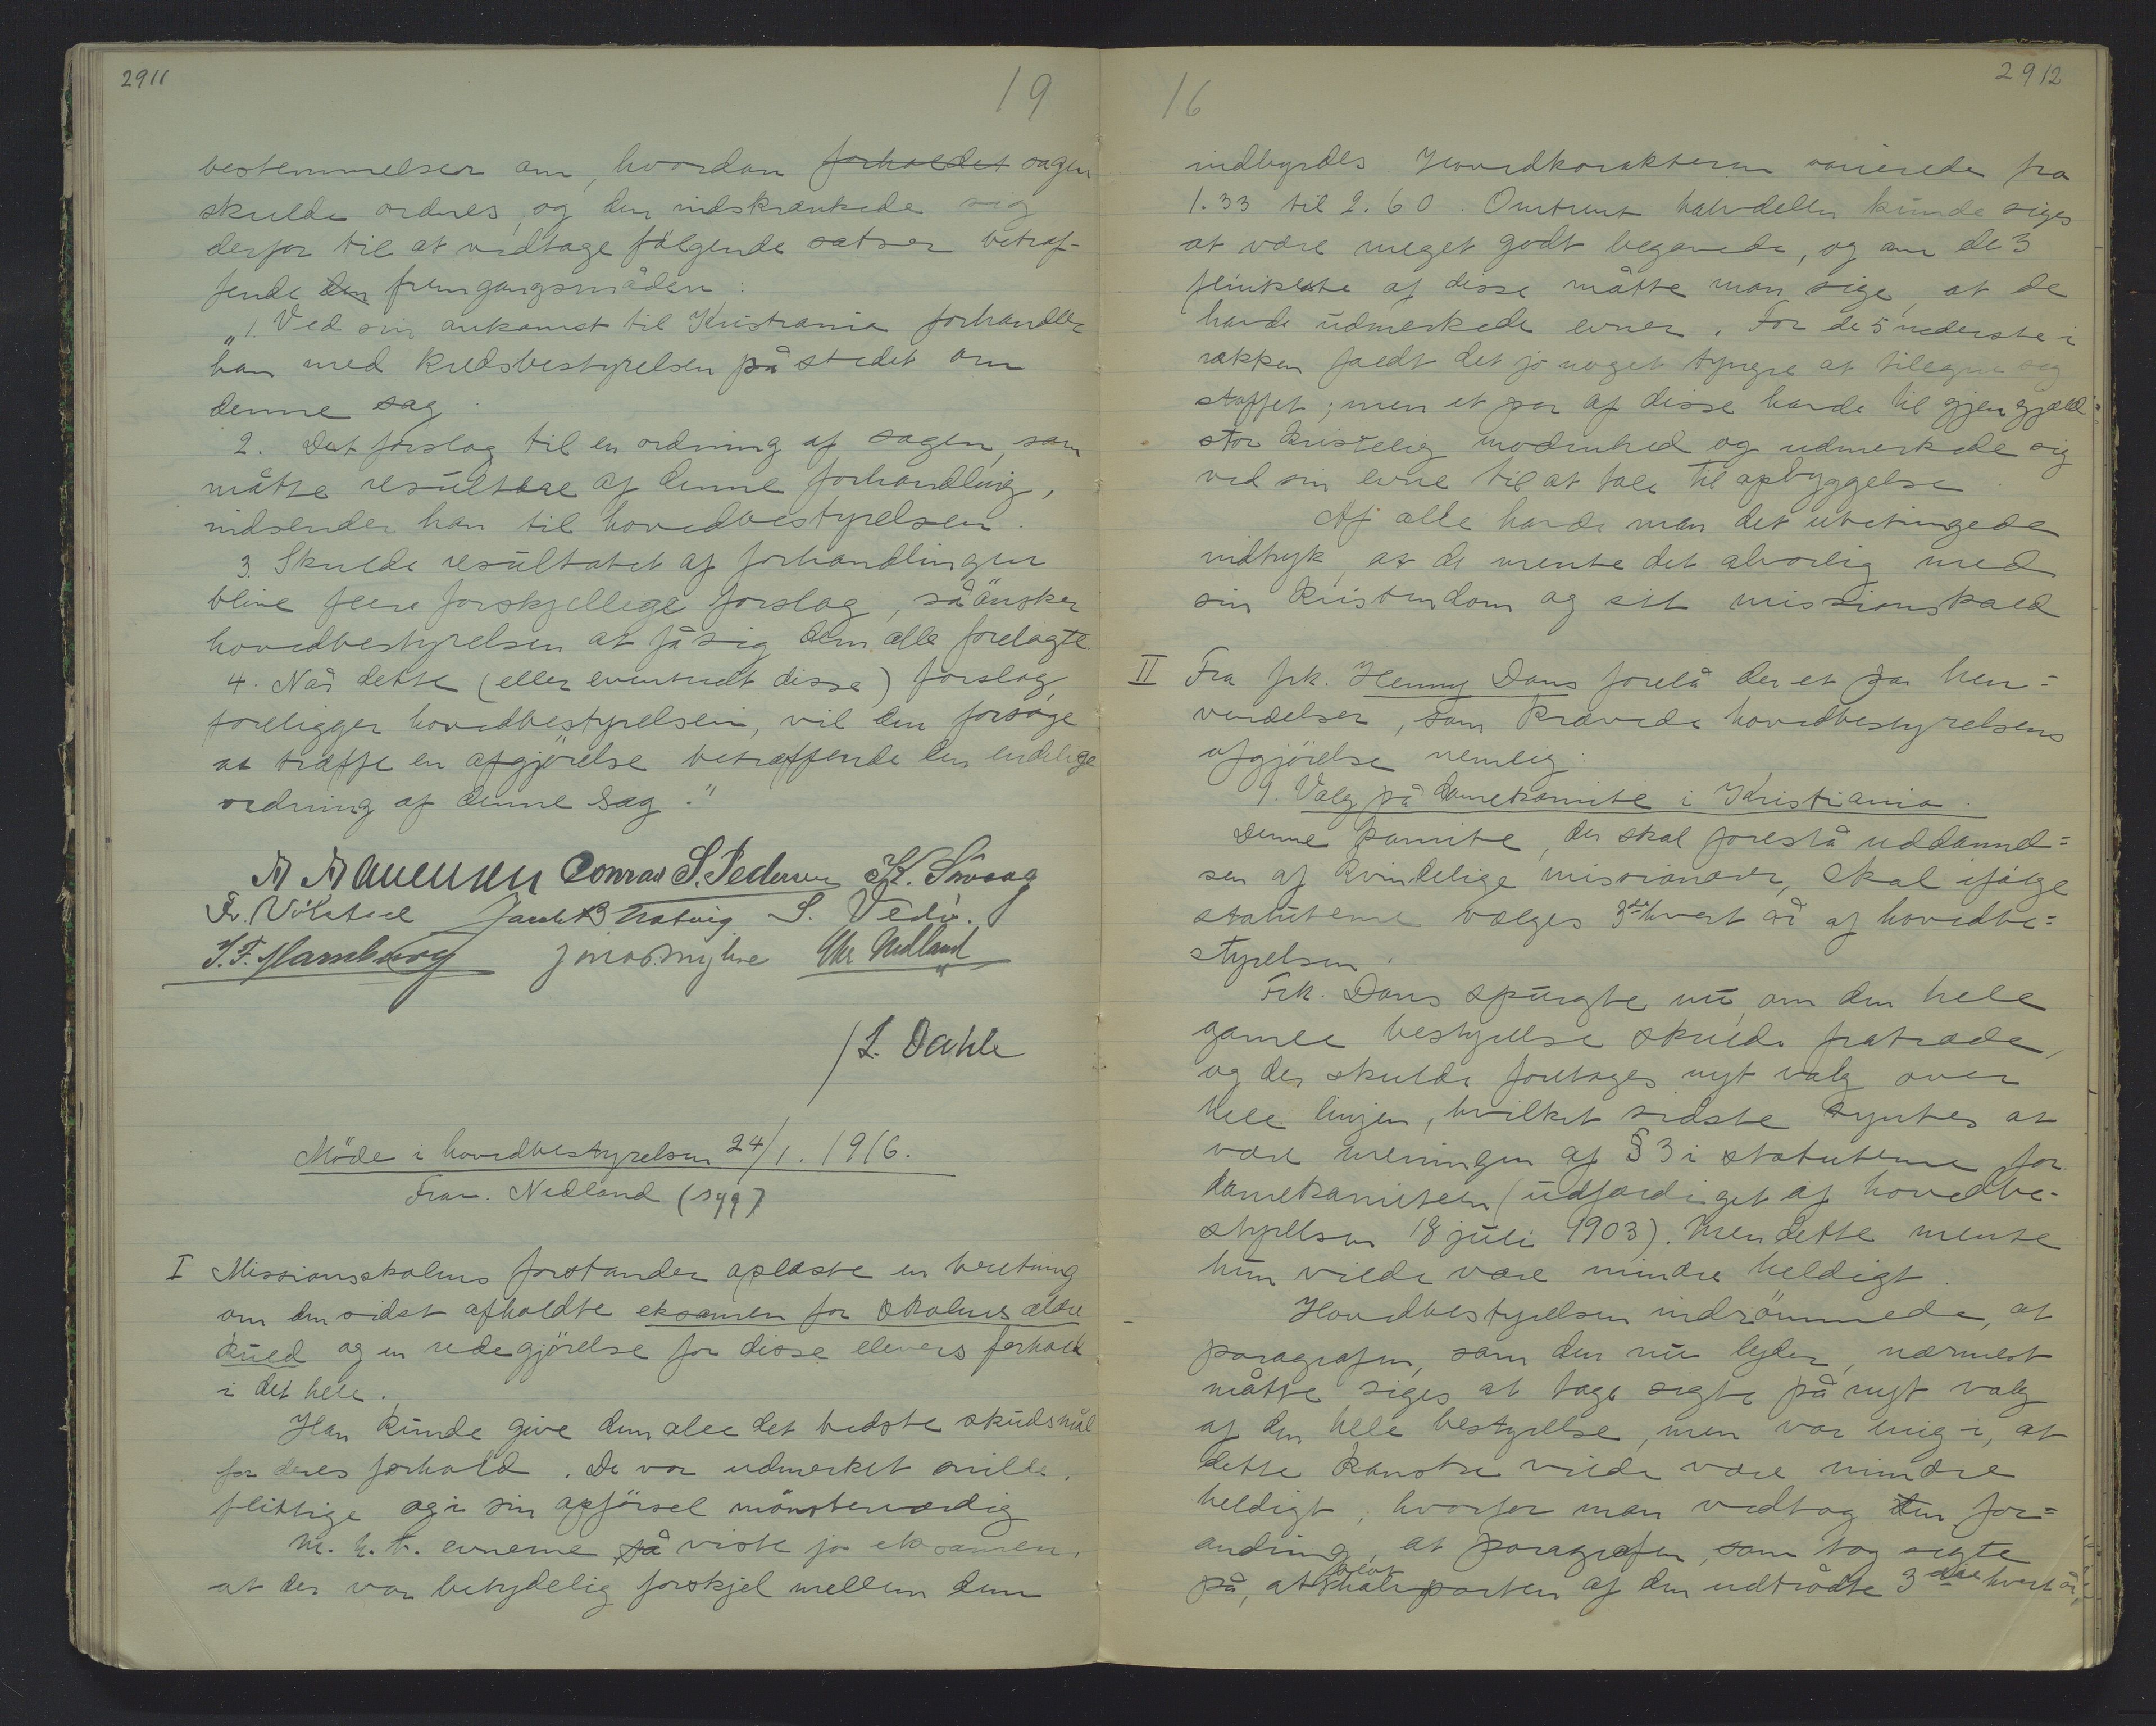 2911
19
bestemmelser om, hvordan forholdet sagen
skulde ordnes, og den indskrænkede sig
derfor til at vedtage følgende satser betræf-
fende den fremgangsmåden:
„1. Ved sin ankomst til Kristiania forhandler
han med kredsbestyrelsen på stedet om
denne sag.
2. Det forslag til en ordning af sagen, som
måtte resultere af denne forhandling,
indsender han til hovedbestyrelsen.
3. Skulde resultatet af forhandlingen
blive flere forskjellige forslag, så ønsker
hovedbestyrelsen at få sig dem alle forelagte.
4. Når dette (eller eventuelt disse) forslag
foreligger hovedbestyrelsen, vil den forsøge
at træffe en afgjörelse betræffende den endelige
ordning af denne sag."
Conrad S. Pedersen
S. Vedø.
Chr Nedland
/L. Dahle
Möde i hovedbestyrelsen 24/1. 1916.
Frav. Nedland (syg)
I Missionsskolens forstander oplæste en beretning
om den sidst afholdte eksamen for skolens ældre
kuld og en redegjörelse for disse elevers forhold
i det hele.
Han kunde give dem alle det bedste skudsmål
for deres forhold. De var udmerket snille,
flittige og i sin opförsel mönsterværdig
M. h. t. evnerne så viste jo eksamen,
at der var betydelig forskjel mellem dem
16
2912
indbyrdes. Hovedkarakteren varierede fra
1.33 til 2.60. Omtrent halvdelen kunde siges
at være meget godt begavede, og om de 3
flinkeste af disse måtte man sige, at de
havde udmerkede evner. For de 5 nederste i
rækken faldt det jo noget tyngre at tilegne sig
stoffet; men et par af disse havde til gjengjæld
stor kristelig modenhed og udmerkede sig
ved sin evne til at tale til opbyggelse.
Af alle havde man det ubetingede
indtryk, at de mente det alvorlig med
sin kristendom og sit missionskald
II Fra frk. Henny Dons forelå der et par hen=
vendelser, som krævede hovedbestyrelsens
afgjörelse nemlig:
1. Valg på damekomite i Kristiania.
Denne komite, der skal forestå uddannel=
sen af kvindelige missionærer, skal ifølge
statuterne vælges 3die hvert år af hovedbe=
styrelsen.
Frk. Dons spurgte nu, om den hele
gamle bestyrelse skulde fratræde,
og der skulde foretages nyt valg over
hele linjen, hvilket sidste syntes at
være meningen af § 3 i statuterne for
damekomiteen (udfærdiget af hovedbe-
styrelsen 18 juli 1903). Men dette mente
hun vilde være mindre heldigt.
Hovedbestyrelsen indrömmede, at
paragrafen, som den nu lyder, nærmest
måtte siges at tage sigte på nyt valg
af den hele bestyrelse, men var enig i, at
dette kanske vilde være mindre
heldigt, hvorfor man vedtog den for=
andring, at paragrafen, som tog sigte
på, at blot halvparten af den udtrådte 3die hvert år,